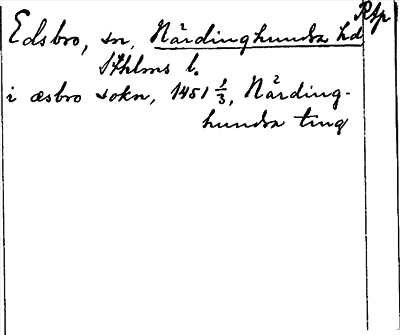 Edsbro, sn, Närdinghundra hd Rtp
Sthlms l.
i æsbro sokn, 1451 1/3, Närding-
hundra ting